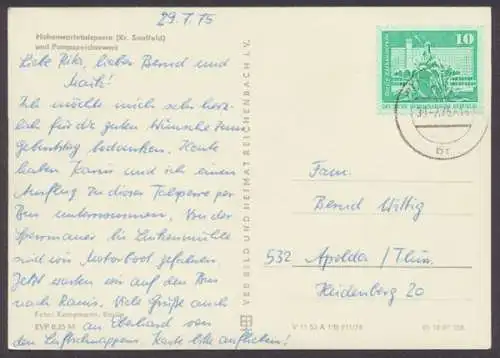 29.7.75
Hohenwartetalsperre (Kr. Saalfeld)
und Pumpspeicherwerk
Liebe Rita, lieber Bernd und
Maik!
Ich möchte mich sehr herz-
lich für die guten Wünsche zum
Geburtstag bedanken. Heute
haben Karin und ich einen
Ausflug zu dieser Talsperre per
Bus unternommen. Von der
Sperrmauer bis Linkenmühle
sind wir Motorboot gefahren.
Jetzt warten wir auf den Bus
nach Ranis. Viele Grüße auch
Foto: Kampmann, Berlin
EVP 0,25 M an Eberhard von
den Luftschnappern. Karte bitte aufheben!
VEB BILD UND HEIMAT REICHENBACH I. V.
10
Fam.
Bernd Wittig
532 Apolda / Thür.
Heidenberg 20
V 11 50 A 1/B